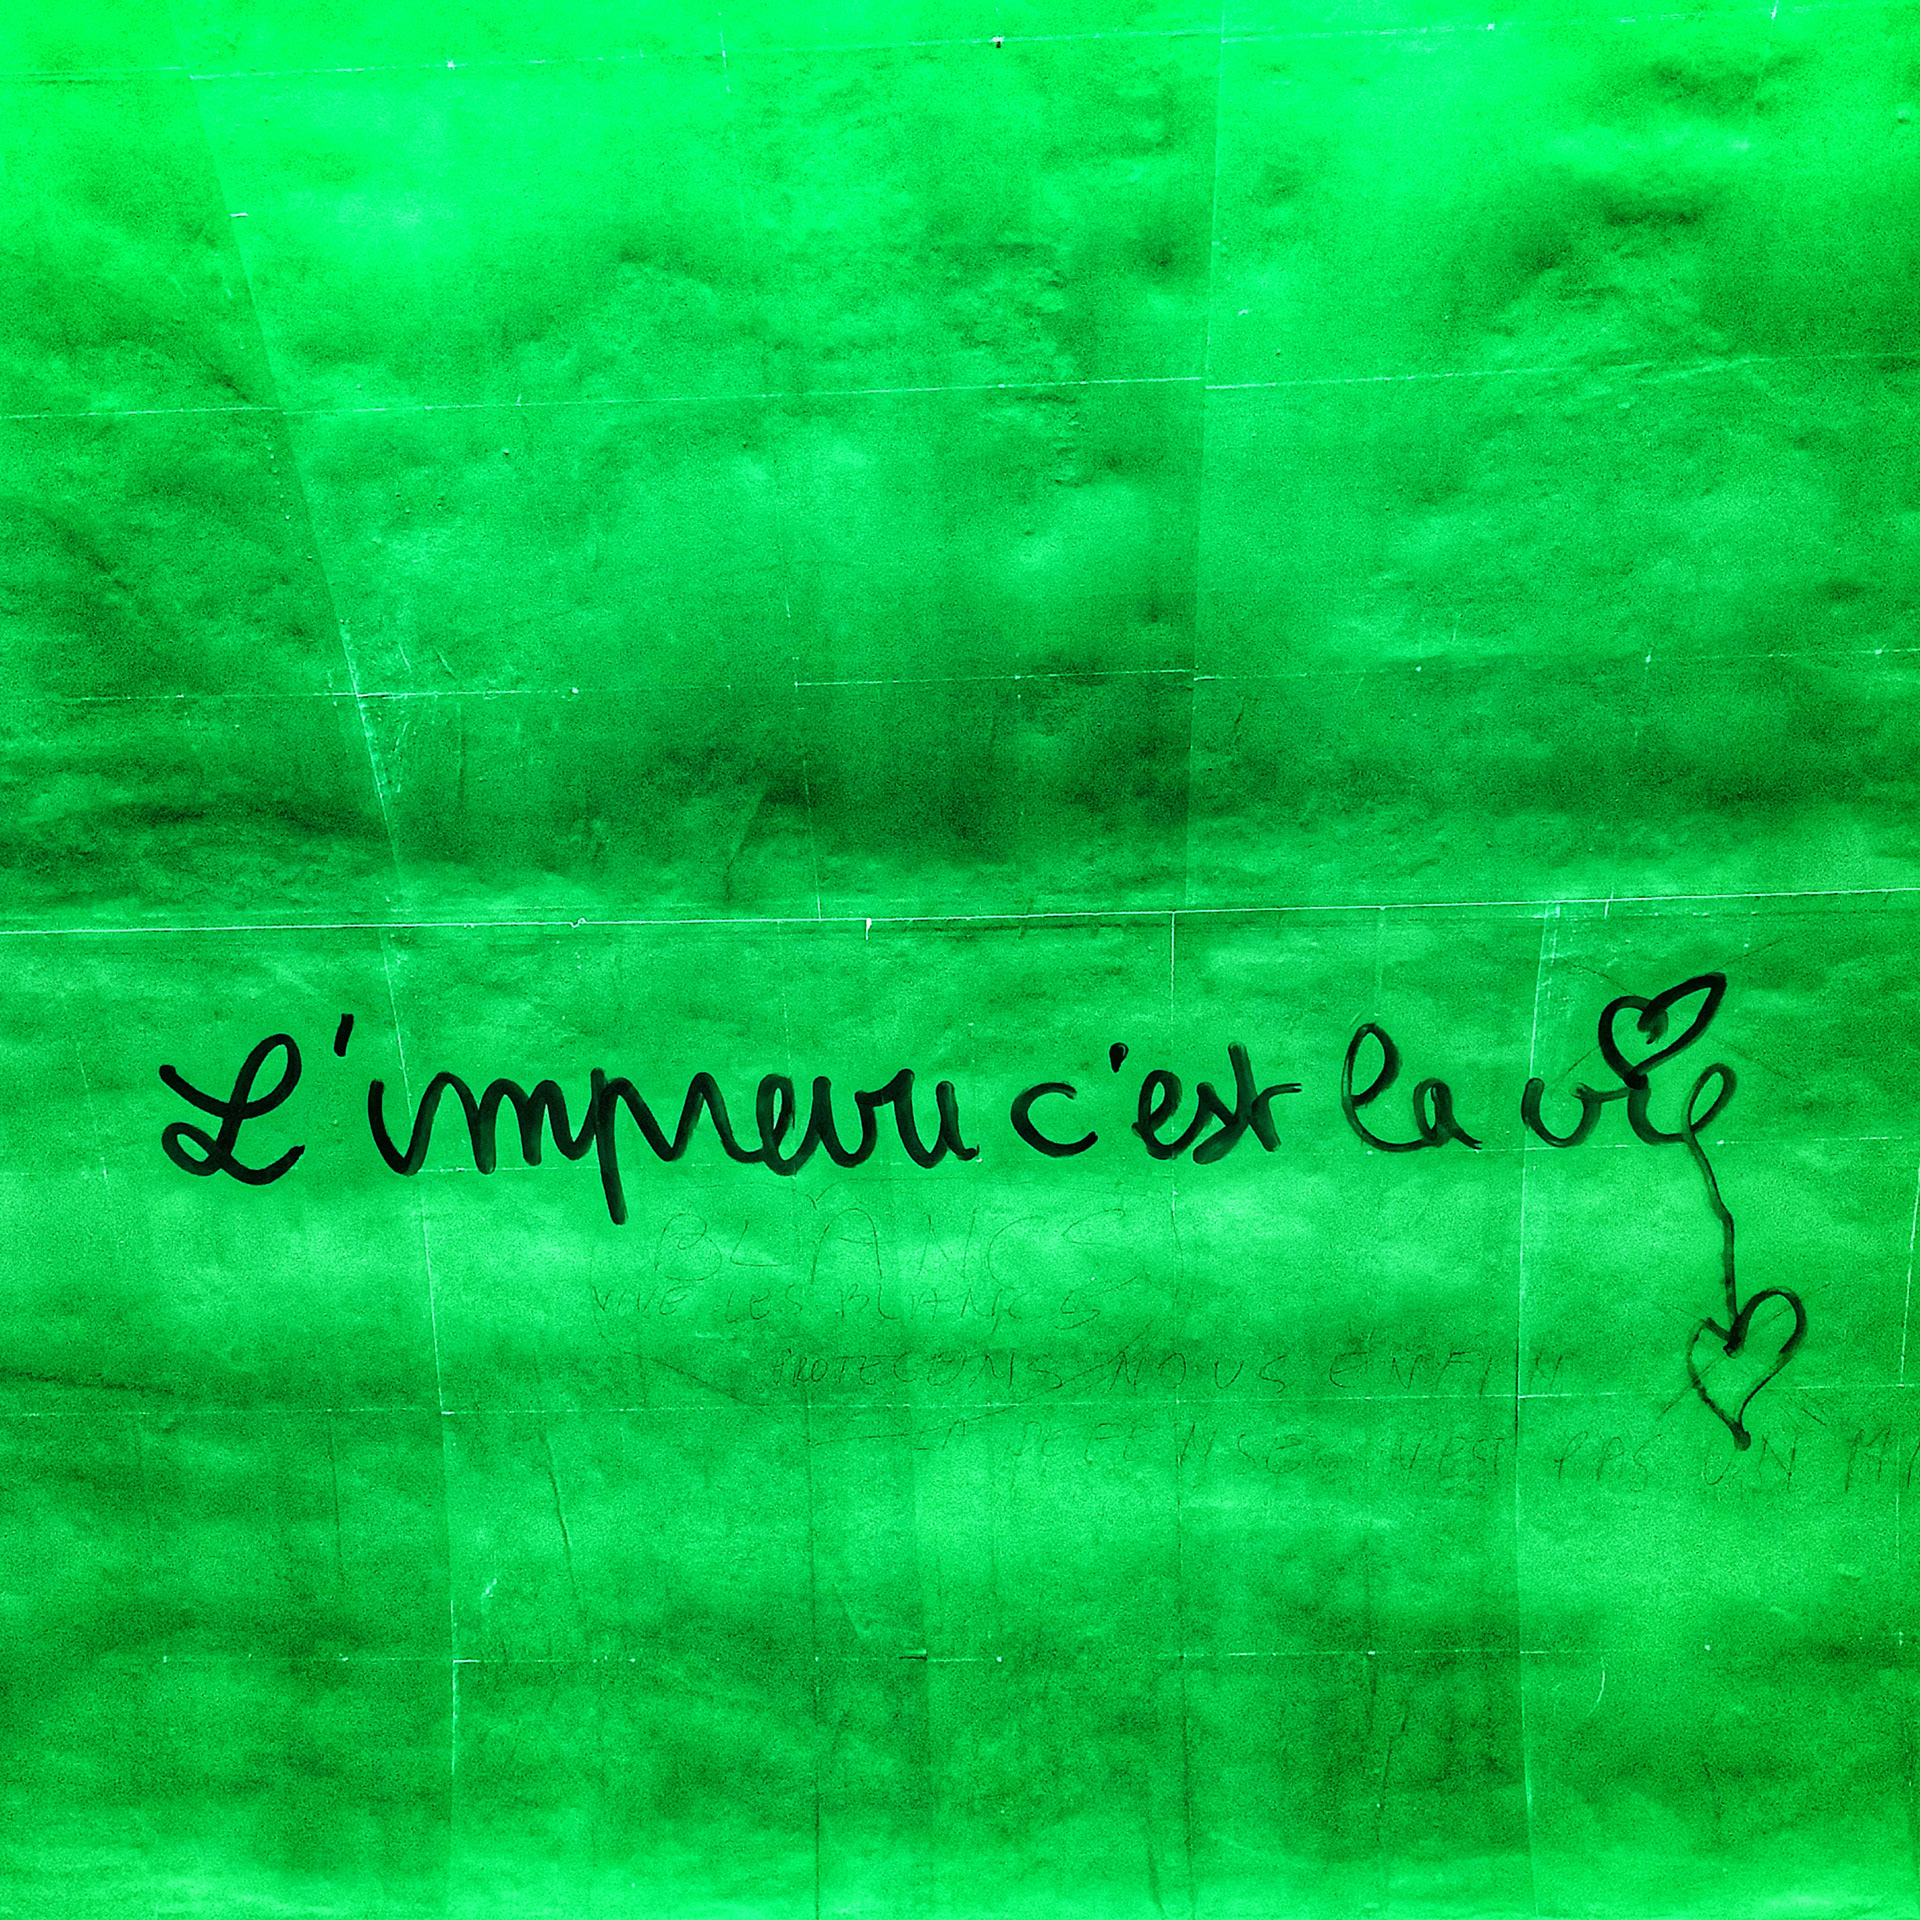 L'imprevu c'est la vie
BLANCS
VIVE LES BLANCS
PROTEGEONS NOUS ENFIN
N'EST PAS UN